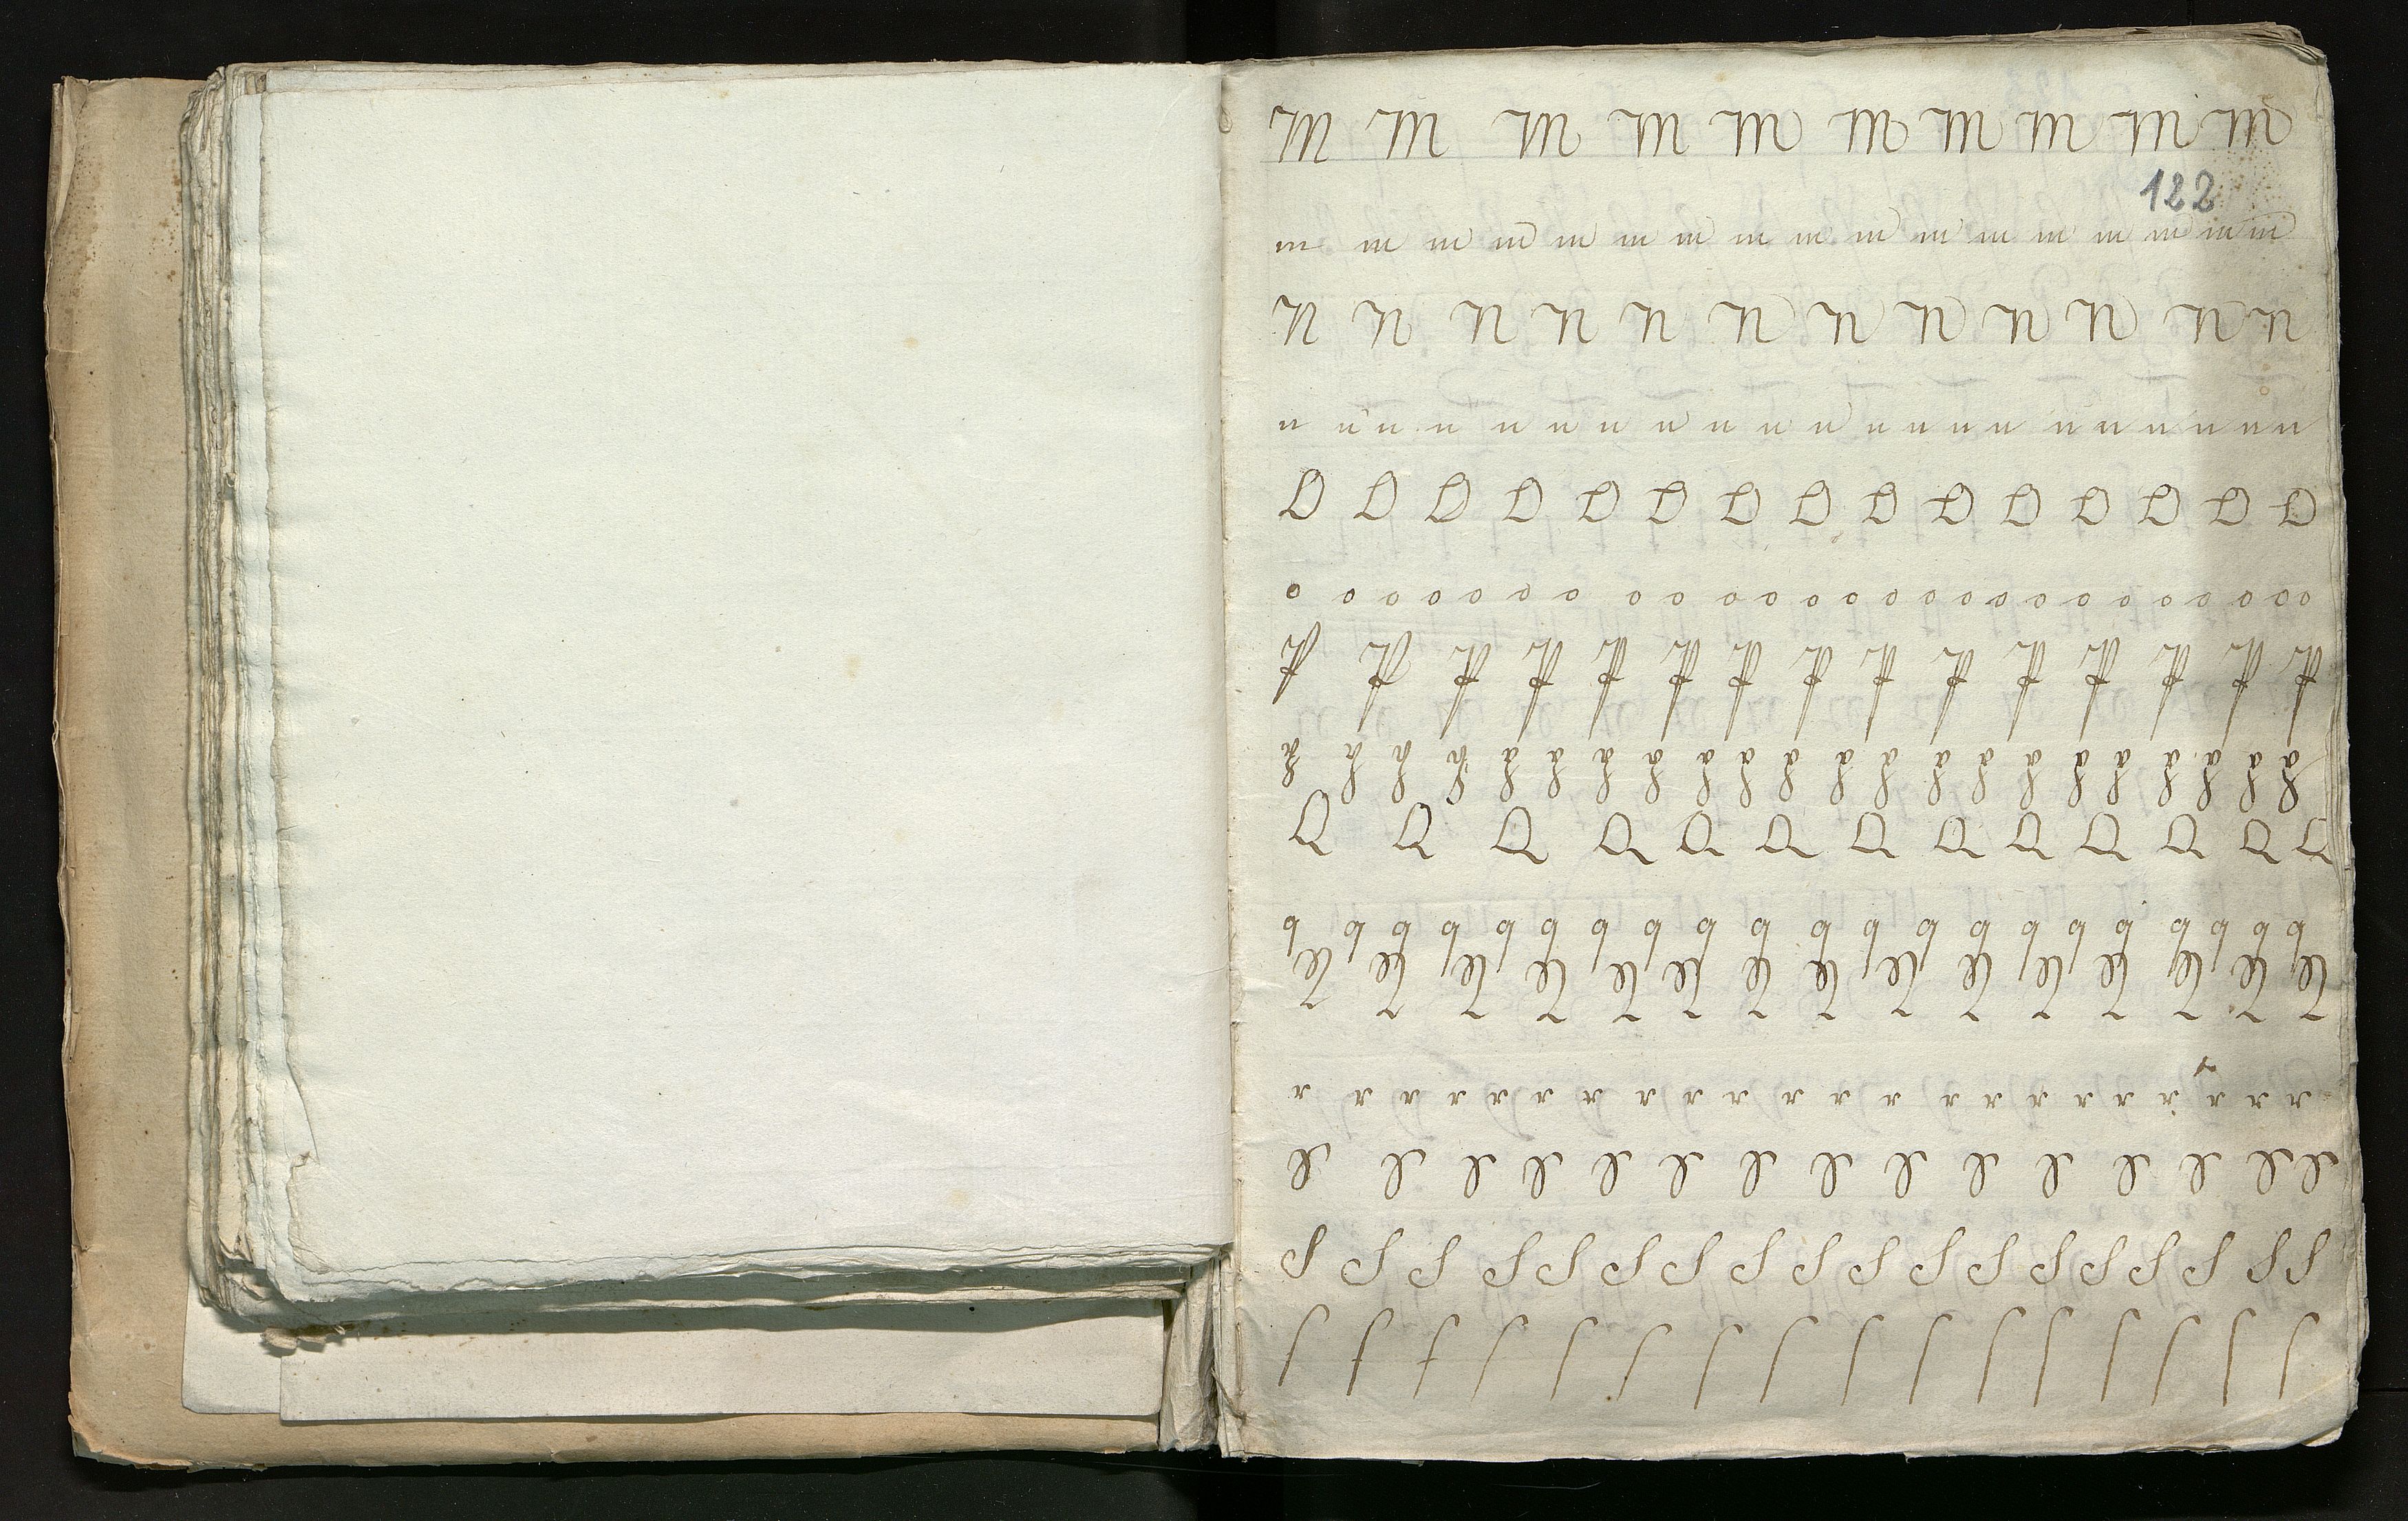 M M M M M M M M M M
122
m m m m m m m m m m m m m m m m m
N N N N N N N N N N N N
n n n n n n n n n n n n n n n n n n n n n
O O O O O O O O O O O O O O O
o o o o o o o o o o o o o o o o o o o o o o o o o
P P P P P P P P P P P P P P P
p p p p p p p p p p p p p p p p p p p p p p
Q Q Q Q Q Q Q Q Q Q Q Q Q
q q q q q q q q q q q q q q q q q q q q q
R R R R R R R R R R R R R R R
r r r r r r r r r r r r r r r r r r r r r r
S S S S S S S S S S S S S S S
s s s s s s s s s s s s s s s s s s
ſ ſ ſ ſ ſ ſ ſ ſ ſ ſ ſ ſ ſ ſ ſ ſ